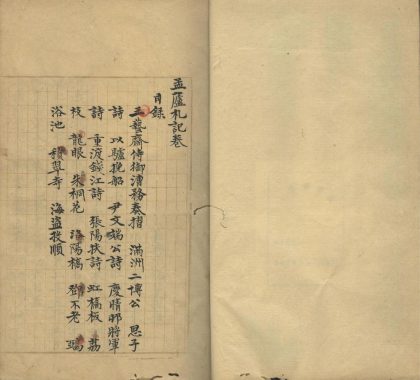 孟廬札記卷
目錄
王藝齋侍御漕務奏摺　滿洲二傅公　思子
詩　以驢挽船　尹文端公詩　慶情邨將軍
詩　重渡錢江詩　張陽扶詩　虹橋板　荔
枝　龍眼　朱桐花　洛陽橋　鄧不老
浴池　積翠寺　海盜投順